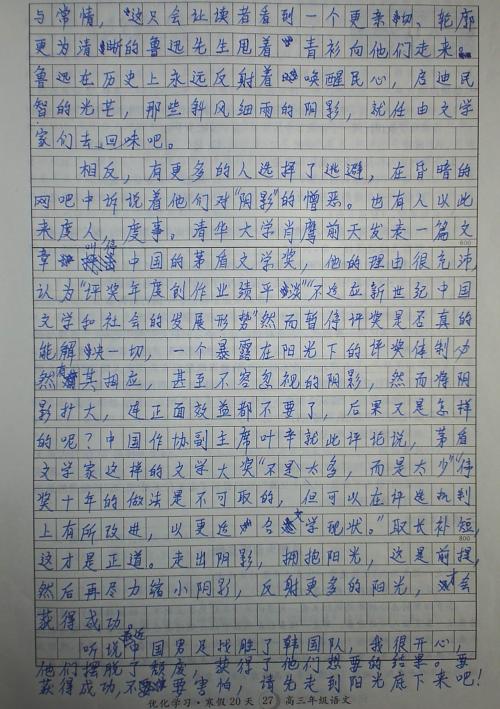 与常情，这只会让读者看到一个更亲切、轮廓
更为清晰的鲁迅先生甩着青衫向他们走来。
鲁迅在历史上永远反射着唤醒民心，启迪民
智的光芒，那些斜风细雨的阴影，就任由文学
家们去回味吧。
相反，有更多的人选择了逃避，在昏暗的
网吧中诉说着他们对“阴影”的憎恶。也有人以此
来度人，度事。清华大学肖鹰前天发表一篇文
800
章叫停中国的茅盾文学奖，他的理由很充沛，
认为“评奖年度创作业绩平淡”“不适应新世纪中国
文学和社会的发展形势”然而暂停评奖是否真的
能解决一切，一个暴露在阳光下的评奖体制必
然有其相应，甚至不容忽视的阴影，然而准阴
影扩大，连正面效益都不要了，后果又是怎样
的呢？中国作协副主席叶辛就此评论说，茅盾
文学家这样的文学大奖“不是太多，而是太少”“停
奖十年的做法是不可取的，但可以在评选机制
上有所改进，以更适合文学现状。”取长补短，
800
这才是正道。走出阴影，拥抱阳光，这是前提，
然后再尽力缩小阴影，反射更多的阳光，才会
获得成功。
听说最近中国男足找胜了韩国队，我很开心，
他们摆脱了颓废，获得了他们想要的结果。要
获得成功，不要害怕，请先走到阳光底下来吧！
优化学习·寒假20天 27 高三年级语文